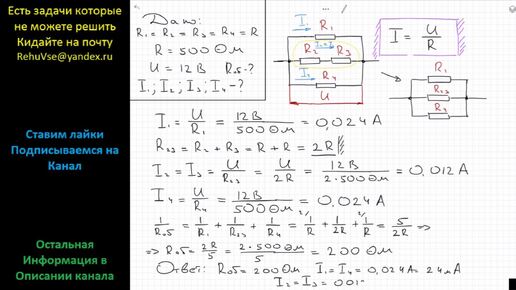 Есть задачи которые
не можете решить
Кидайте на почту
RehuVse@yandex.ru
Ставим лайки
Подписываемся на
Канал
Остальная
Информация в
Описании канала
Дано:
R₁ = R₂ = R₃ = R₄ = R
R = 500 Ом
U = 12 В R₀δ - ?
I₁; I₂; I₃; I₄ - ?
I₁ R₁
I₂ = I₃
R₂ R₃
I₄ R₄
U
I = U/R
R₁
R₂₃
R₄
I₁ = U/R₁ = 12В/500 Ом = 0,024 А
R₂₃ = R₂ + R₃ = R + R = 2R
I₂ = I₃ = U/R₂₃ = U/2R = 12В/2·500 Ом = 0,012 А
I₄ = U/R₄ = 12В/500 Ом = 0,024 А
1/R₀δ = 1/R₁ + 1/R₂₃ + 1/R₄ = 1/R + 1/2R + 1/R = 5/2R =>
=> R₀δ = 2R/5 = 2·500 Ом/5 = 200 Ом
Ответ: R₀δ = 200 Ом I₁ = I₄ = 0,024 А = 24 мА
I₂ = I₃ =